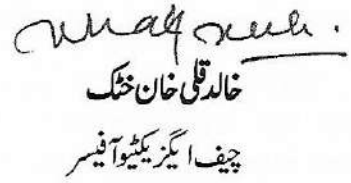 خالد قلی خان خٹک
چیف ایگزیکٹیو آفیسر